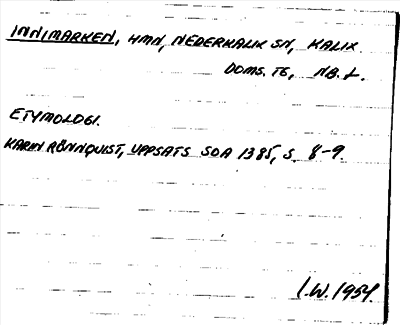 INNIMARKEN, HMN, NEDERKALIX SN, KALIX
DOMS. TG, NB. L.
ETYMOLOGI.
KARIN RÖNNQUIST, UPPSATS SOA 1385, S. 8-9.
I.W. 1954